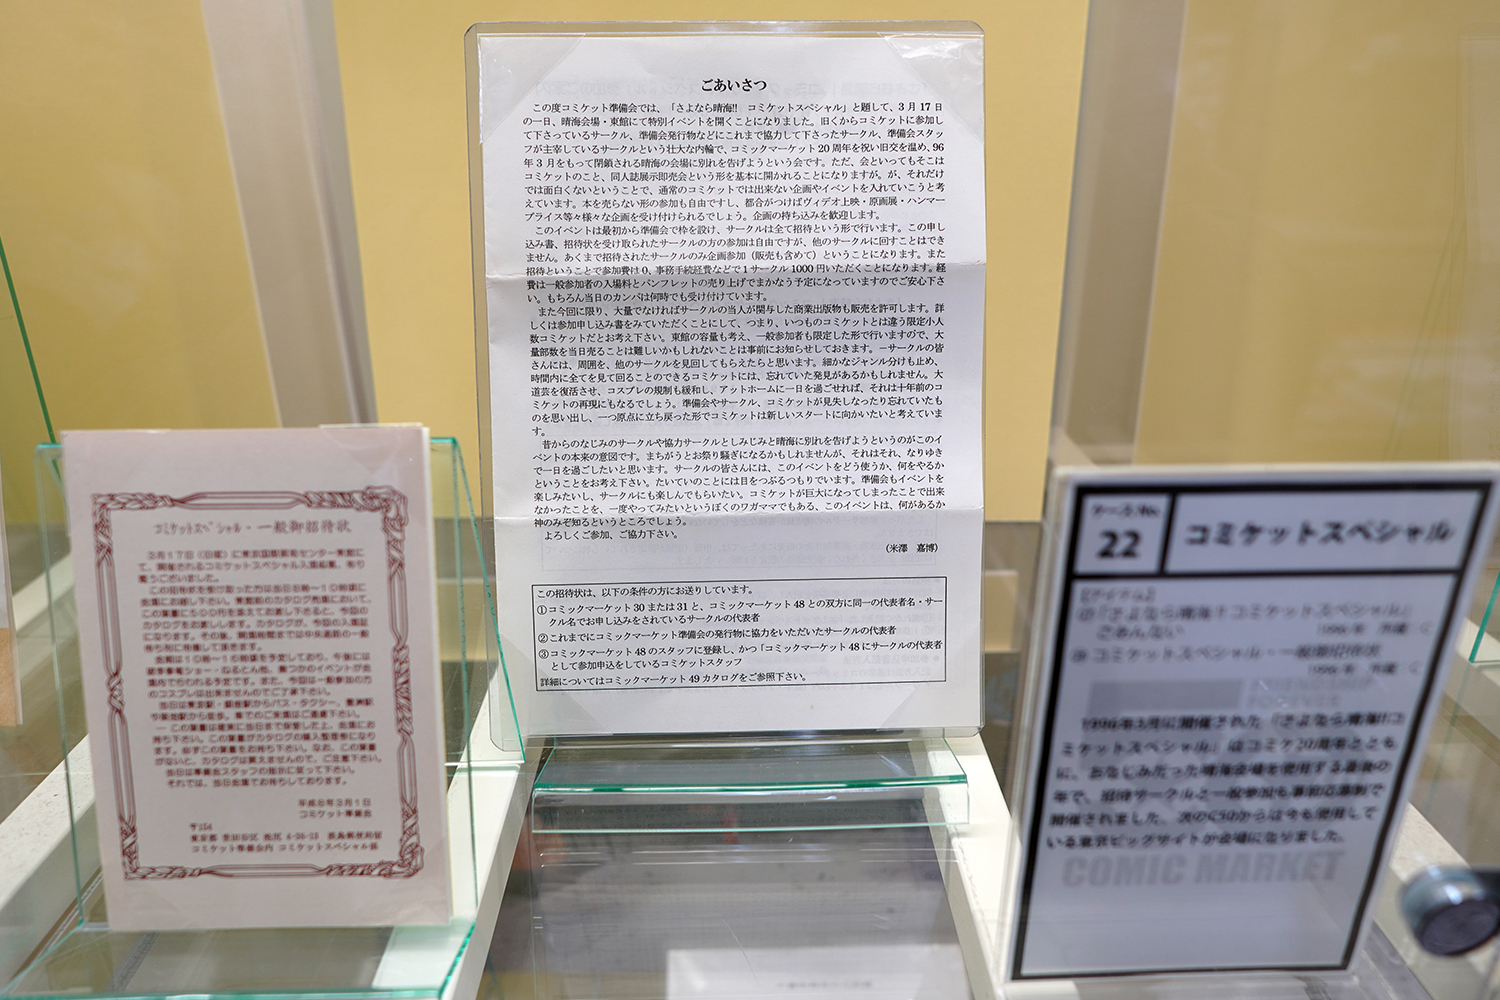 ごあいさつ
この度コミケット準備会では、「さよなら晴海!! コミケットスペシャル」と題して、3月17日
の一日、晴海会場・東館にて特別イベントを開くことになりました。旧くからコミケットに参加し
て下さっているサークル、準備会発行物などにこれまで協力して下さったサークル、準備会スタッ
フが主宰しているサークルという壮大な内輪で、コミックマーケット20周年を祝い旧交を温め、96
年3月をもって閉鎖される晴海の会場に別れを告げようという会です。ただ、会といってもそこは
コミケットのこと、同人誌展示即売会という形を基本に開かれることになりますが。が、それだけ
では面白くないということで、通常のコミケットでは出来ない企画やイベントを入れていこうと考
えています。本を売らない形の参加も自由ですし、都合がつけばヴィデオ上映・原画展・ハンマー
プライス等々様々な企画を受け付けられるでしょう。企画の持ち込みを歓迎します。
このイベントは最初から準備会で枠を設け、サークルは全て招待という形で行います。この申し
込み書、招待状を受け取られたサークルの方の参加は自由ですが、他のサークルに回すことはでき
ません。あくまで招待されたサークルのみ企画参加（販売も含めて）ということになります。また
招待ということで参加費は0、事務手続経費などで1サークル1000円いただくことになります。経
費は一般参加者の入場料とパンフレットの売り上げでまかなう予定になっていますのでご安心下さ
い。もちろん当日のカンパは何時でも受け付けています。
また今回に限り、大量でなければサークルの当人が関与した商業出版物も販売を許可します。詳
しくは参加申し込み書をみていただくことにして、つまり、いつものコミケットとは違う限定小人
数コミケットだとお考え下さい。東館の容量も考え、一般参加者も限定した形で行いますので、大
量部数を当日売ることは難しいかもしれないことは事前にお知らせしておきます。－サークルの皆
さんには、周囲を、他のサークルを見回してもらえたらと思います。細かなジャンル分けも止め、
時間内に全てを見て回ることのできるコミケットには、忘れていた発見があるかもしれません。大
道芸を復活させ、コスプレの規制も緩和し、アットホームに一日を過ごせれば、それは十年前のコ
ミケットの再現にもなるでしょう。準備会やサークル、コミケットが見失しなったり忘れていたも
のを思い出し、一つ原点に立ち戻った形でコミケットは新しいスタートに向かいたいと考えていま
す。
昔からのなじみのサークルや協力サークルとしみじみと晴海に別れを告げようというのがこのイ
ベントの本来の意図です。まちがうとお祭り騒ぎになるかもしれませんが、それはそれ、なりゆき
で一日を過ごしたいと思います。サークルの皆さんには、このイベントをどう使うか、何をやるか
ということをお考え下さい。たいていのことには目をつぶるつもりでいます。準備会もイベントを
楽しみたいし、サークルにも楽しんでもらいたい。コミケットが巨大になってしまったことで出来
なかったことを、一度やってみたいというぼくのワガママでもある、このイベントは、何があるか
神のみぞ知るというところでしょう。
よろしくご参加、ご協力下さい。
（米澤 嘉博）
この招待状は、以下の条件の方にお送りしています。
①コミックマーケット30または31と、コミックマーケット48との双方に同一の代表者名・サー
クル名でお申し込みをされているサークルの代表者
②これまでにコミックマーケット準備会の発行物に協力をいただいたサークルの代表者
③コミックマーケット48のスタッフに登録し、かつ「コミックマーケット48にサークルの代表者
として参加申込をしているコミケットスタッフ
詳細についてはコミックマーケット49カタログをご参照下さい。
コミケットスペシャル・一般御招待状
3月17日（日曜）に東京国際見本市センター東館に
て、開催されるコミケットスペシャル入場応募、有り
難うございました。
この招待状を受け取った方は当日8時～10時頃に
会場にお越し下さい。東館前のカタログ売場において、
この葉書に500円を添えてお渡し下さると、今回の
カタログをお渡しします。カタログが、今回の入場証
になります。その後、開場時間までは中央通路の一般
待ち列に待機して頂きます。
会期は10時～16時頃を予定しており、午後には
場内でも行われる予定です。また、今回は一般参加の方
のコスプレは出来ませんのでご了承下さい。
ー この葉書は確実に当日まで保管した上、会場にお
持ち下さい。この葉書がカタログの購入整理券になり
ます。必ずこの葉書をお持ち下さい。なお、この葉書
がないと、カタログは買えませんので、ご注意下さい。
当日は準備会スタッフの指示に従って下さい。
それでは、当日会場でお待ちしております。
平成8年3月1日
コミケット準備会
〒154
コミケット準備会内 コミケットスペシャル係
ケースNo.
22
コミケットスペシャル
【アイテム】
「さよなら晴海!!コミケットスペシャル」
ごあんない
1996年 所蔵：C
コミケットスペシャル・一般御招待状
1996年 所蔵：C
1996年3月に開催された「さよなら晴海!!コ
ミケットスペシャル」はコミケ20周年ととも
に、おなじみだった晴海会場を使用する最後の
年で、招待サークルと一般参加も事前応募制で
開催されました。次のC50からは今も使用して
いる東京ビッグサイトが会場になりました。
COMIC MARKET